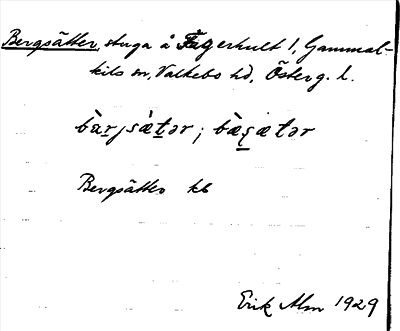 Bergsätter, stuga å Fagerhult 1, Gammal-
kils sn, Valkebo hd, Österg. l.
Bergsätter kb
Erik Alm 1929